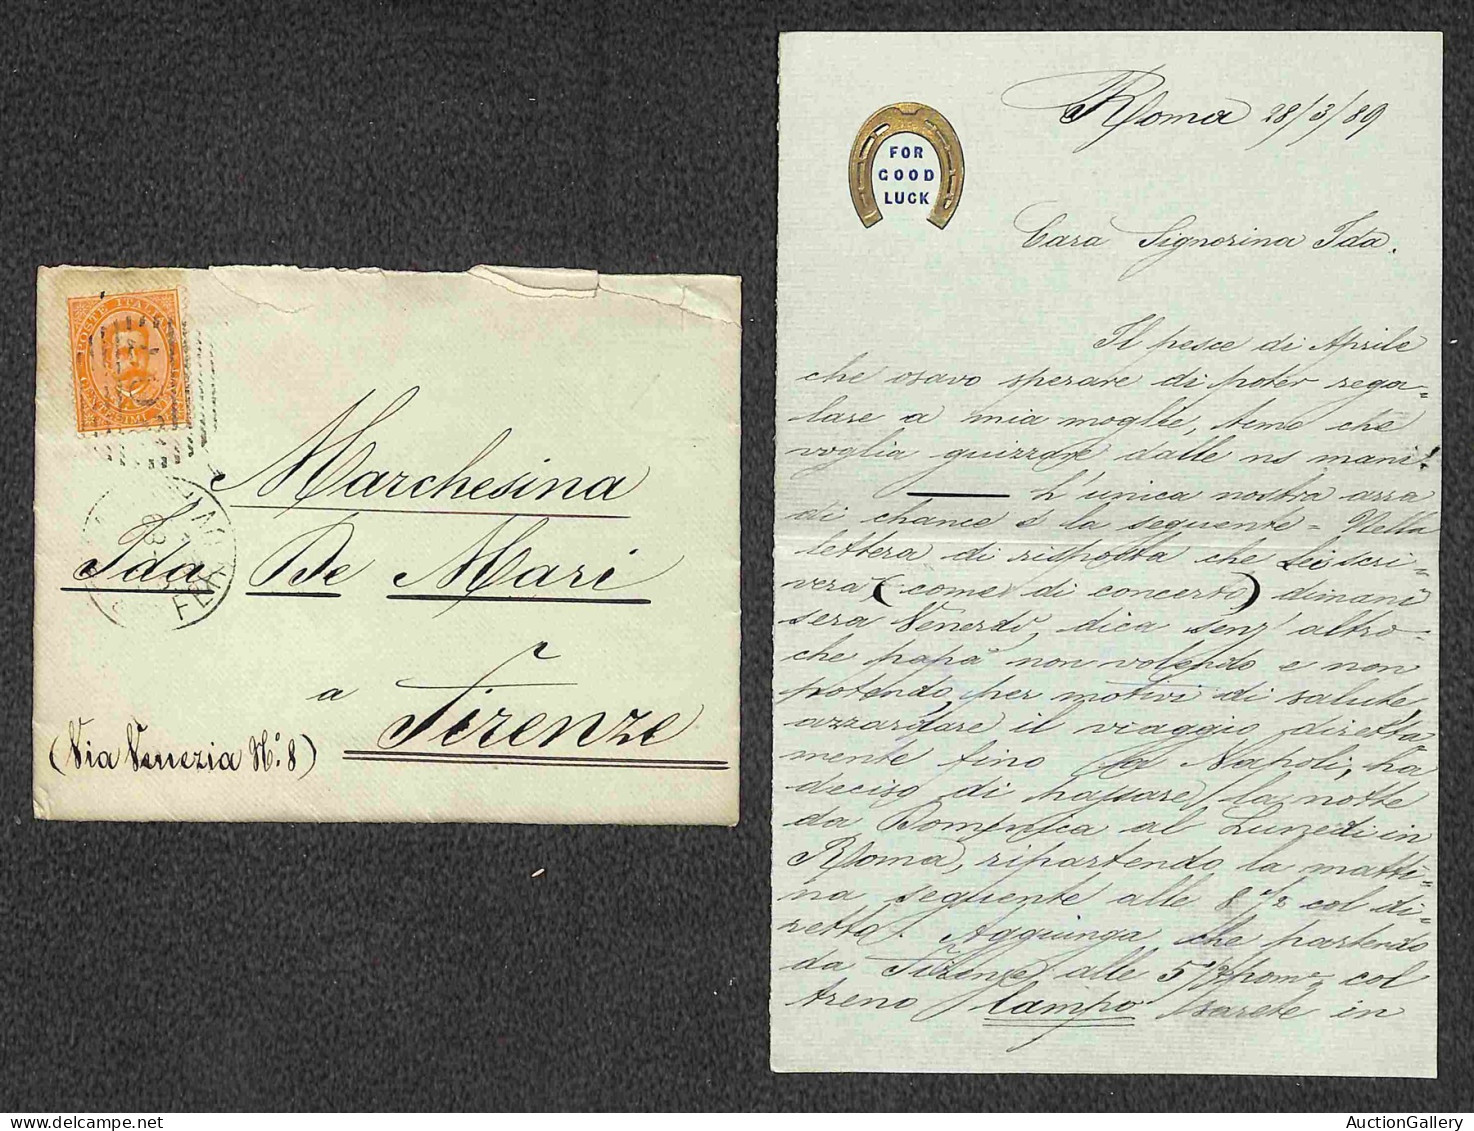 POSTE ITALIANE
CENTESIMI
Marchesina
Ida De Mari
a Firenze
(Via Venezia N.º 8)
FOR
GOOD
LUCK
Roma 28/3/89
Cara Signorina Ida.
Il pesce di Aprile
che osavo sperare di poter rega=
lare a mia moglie, temo che
voglia guizzare dalle ns mani!
L'unica nostra
di chance è la seguente = Nella
lettera di risposta che Lei scri=
verà (come di concerto) dimani
sera Venerdì, dica senz'altro
che papà non volendo e non
potendo, per motivi di salute,
azzardare il viaggio diretta
mente fino a Napoli, ha
deciso di passare la notte
da Domenica al Lunedi in
Roma, ripartendo la matti=
na seguente alle 8 1/2 col di=
retto. Aggiunga che partendo
da Firenze alle 5 1/2 pomne col
treno lampo sarete in
AuctionGallery